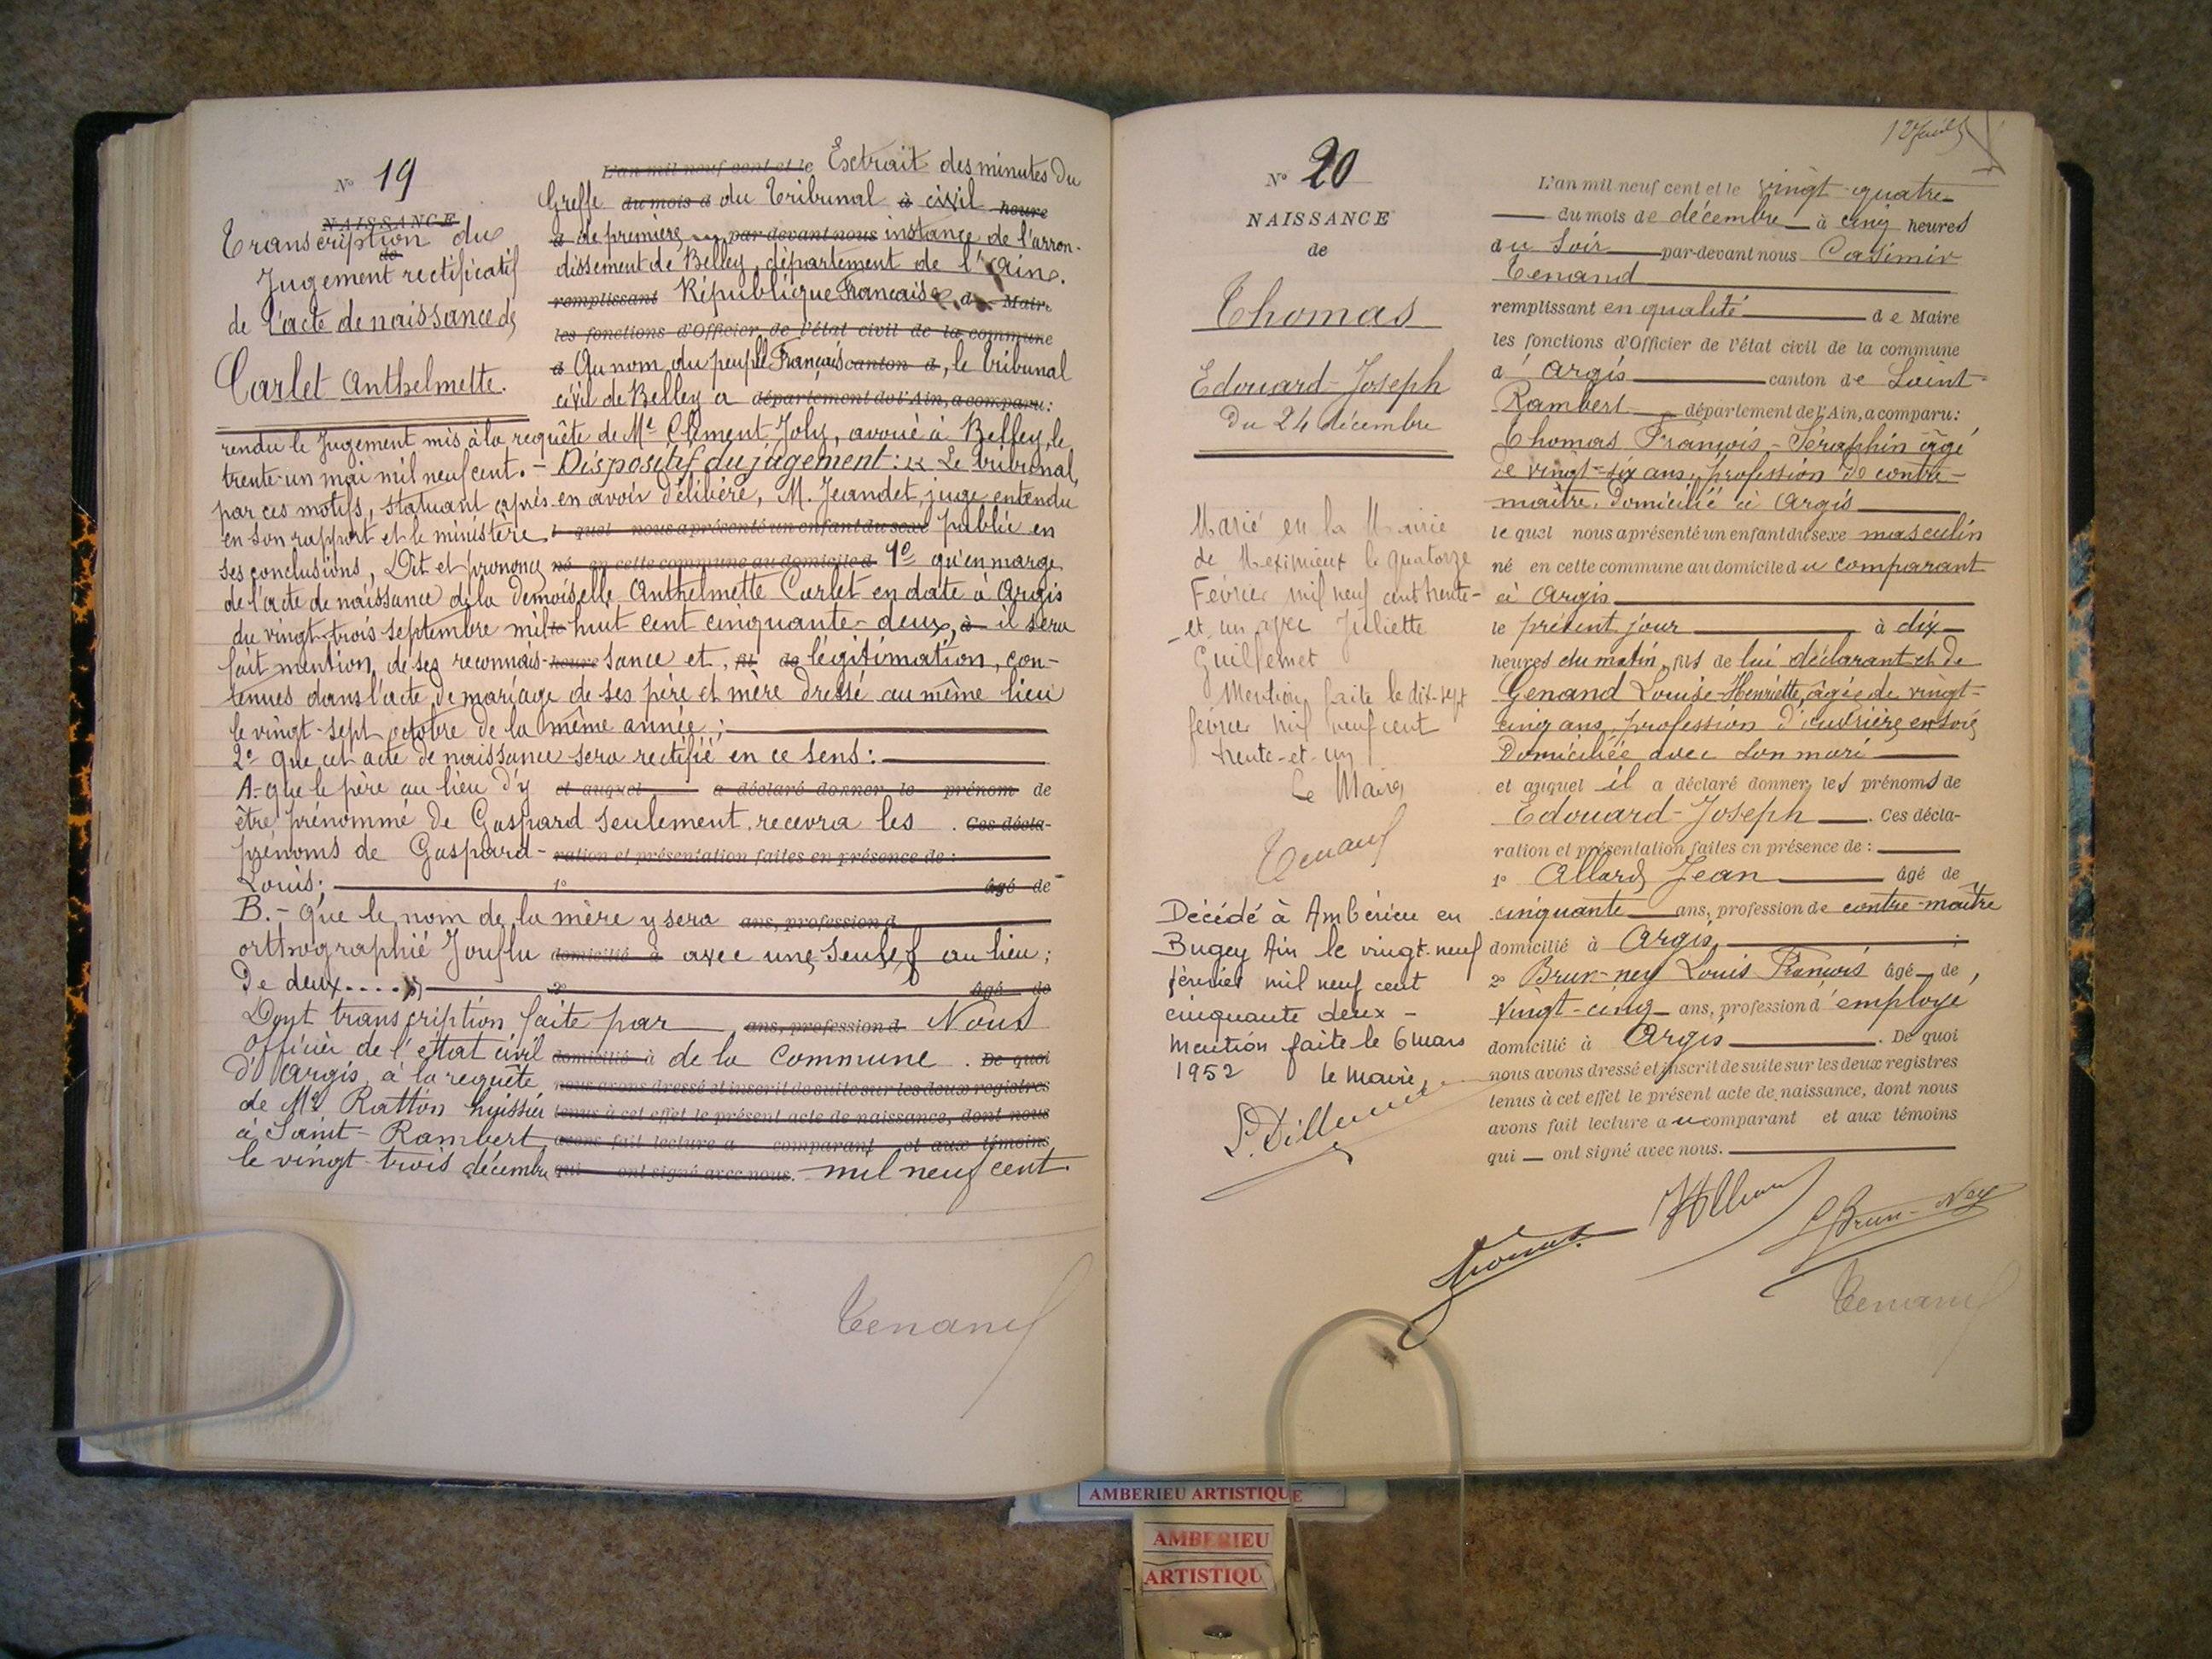 Nº 19
NAISSANCE
Transcription du
de
Jugement rectificatif
de l'acte de naissance de
Carlet Anthelmette.
L'an mil neuf cent et le Extrait des minutes du
Greffe du mois d du Tribunal à civil heure
d de première par-devant nous instance de l'arron-
dissement de Belley, département de l'Ain.
remplissant République Française d Maire
les fonctions d'Officier de l'état civil de la commune
d Au nom du peuple Français canton d, le tribunal
civil de Belley a département de l'Ain, a comparu:
rendu le Jugement mis à la requête de Me Clément Joly, avoué à Belley, le
trente-un mai mil neuf cent. - Dispositif du jugement: « Le tribunal,
par ces motifs, statuant après en avoir délibéré, M. Jeandet, juge entendu
en son rapport et le ministère l quel nous a présenté un enfant du sexe public en
ses conclusions, Dit et prononce né en cette commune au domicile d 1º qu'en marge
de l'acte de naissance de la demoiselle Anthelmette Carlet en date à Argis
du vingt-trois septembre mil le huit cent cinquante-deux, à il sera
fait mention de ses reconnais- heure sance et, fil de légitimation, con-
tenues dans l'acte de mariage de ses père et mère dressé au même lieu
le vingt-sept octobre de la même année;
2º que cet acte de naissance sera rectifié en ce sens:
A.- que le père au lieu d'y et auquel a déclaré donner le prénom de
être prénommé de Gaspard seulement, recevra les . Ces décla-
prénoms de Gaspard- ration et présentation faites en présence de:
Louis; 1º âgé de
B.- Que le nom de la mère y sera ans, profession d
orthographié Jouflu domicilié à avec une seule f au lieu;
De deux....» 2º âgé de
Dont transcription faite par ans, profession d Nous
Officier de l'état civil domicilié à de la commune . De quoi
d'Argis, à la requête nous avons dressé et inscrit de suite sur les deux registres
de Me Ratton huissier tenus à cet effet le présent acte de naissance, dont nous
à Saint-Rambert, avons fait lecture a comparant et aux témoins
le vingt-trois décembre qui ont signé avec nous. mil neuf cent.
Tenand
Nº 20
NAISSANCE
de
Thomas
Edouard-Joseph
Du 24 décembre
Marié en la Mairie
de Meximieux le quatorze
Février mil neuf cent trente-
et un avec Juliette
Guillemet
Mention faite le dix-sept
février mil neuf cent
trente-et-un
Le Maire,
Tenand
Décédé à Ambérieu en
Bugey Ain le vingt-neuf
février mil neuf cent
cinquante deux -
Mention faite le 6 mars
1952 le Maire,
L'an mil neuf cent et le vingt-quatre
du mois de décembre à cinq heures
du Soir par-devant nous Casimir
Tenand
remplissant en qualité de Maire
les fonctions d'Officier de l'état civil de la commune
d'Argis canton de Saint-
Rambert département de l'Ain, a comparu:
Thomas François-Séraphin âgé
de vingt-six ans, profession de contre-
maître, domicilié à Argis
le quel nous a présenté un enfant du sexe masculin
né en cette commune au domicile du comparant
à Argis
le présent jour à dix
heures du matin, fils de lui déclarant et de
Genand Louise-Henriette, âgée de vingt-
cinq ans, profession d'ouvrière en soie
Domiciliée avec son mari
et auquel il a déclaré donner les prénoms de
Edouard-Joseph . Ces décla-
ration et présentation faites en présence de:
1º Allard Jean âgé de
cinquante ans, profession de contre-maître
domicilié à Argis ;
2º Brun-ney Louis François âgé de
vingt-cinq ans, profession d'employé
domicilié à Argis . De quoi
nous avons dressé et inscrit de suite sur les deux registres
tenus à cet effet le présent acte de naissance, dont nous
avons fait lecture au comparant et aux témoins
qui ont signé avec nous.
Thomas
L Brun-Ney
Tenand
AMBERIEU ARTISTIQUE
AMBERIEU
ARTISTIQU